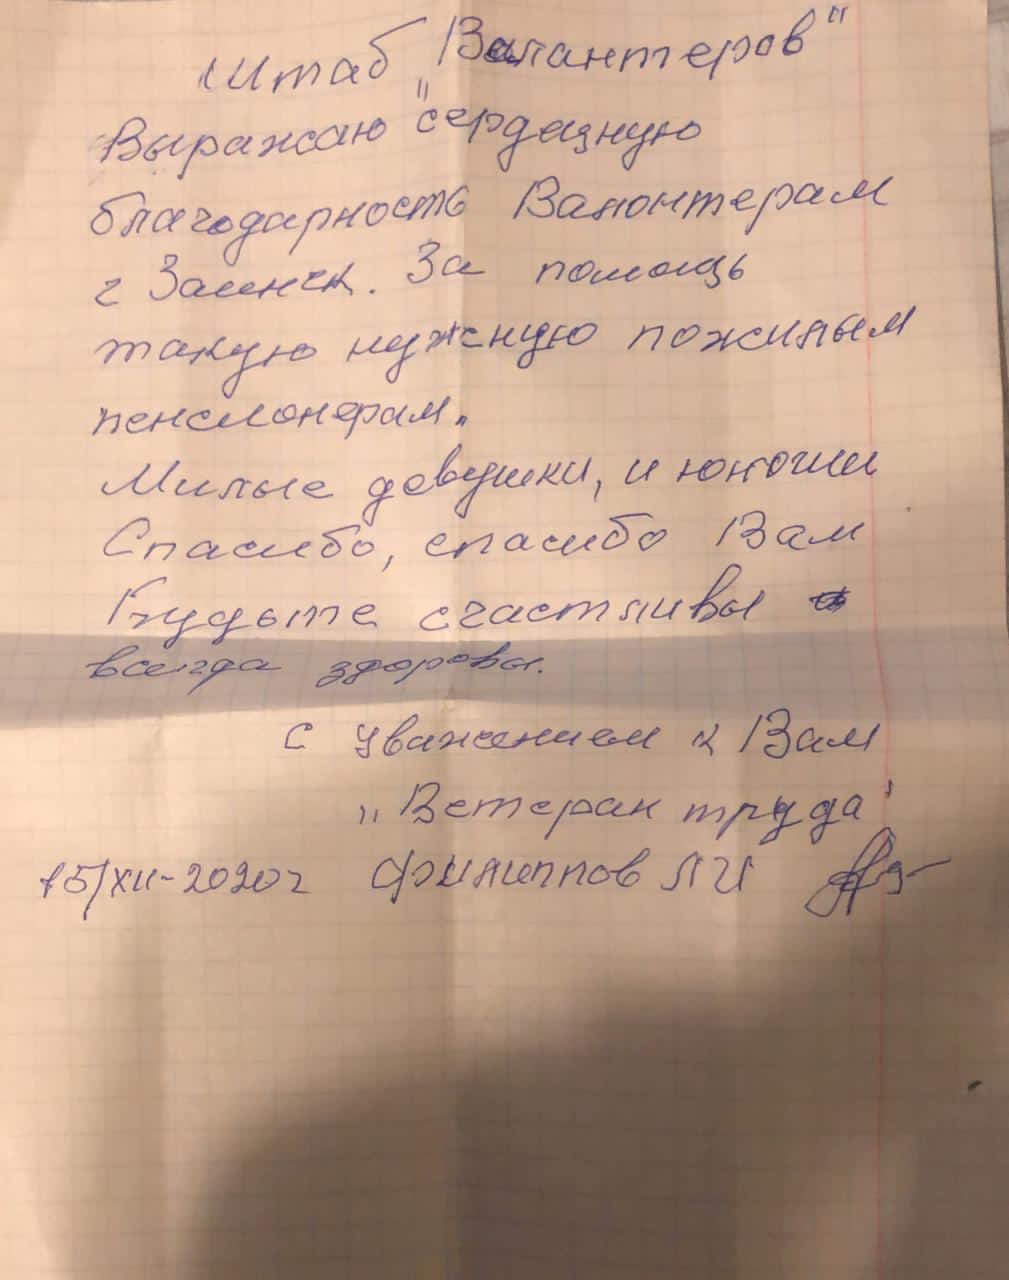 Штаб "Валантеров"
Выражаю сердечную
благодарность Валонтерам
г Заинск. За помощь
такую нужную пожилым
пенсионерам.
Милые девушки, и юноши
Спасибо, спасибо Вам
Будьте счастливы
всегда здоровы.
С уважением к Вам
"Ветеран труда"
15/XII-2020г Филиппов ЛИ